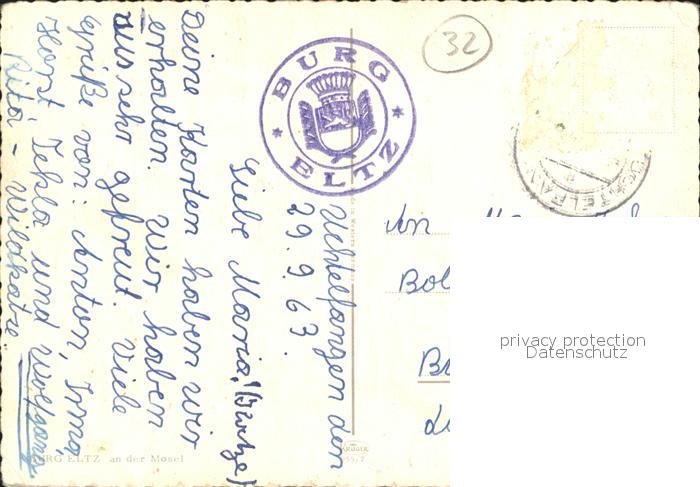 Uchtelfangen den
29.9.63.
Liebe Maria!
Deine Karten haben wir
erhalten. Wir haben
uns sehr gefreut. Viele
Grüße von: Anton, Irma
Horst, Tekla und Wolfgang
Rita -
BURG ELTZ an der Mosel
BURG
ELTZ
32
An
KRÜGER
privacy protection
Datenschutz